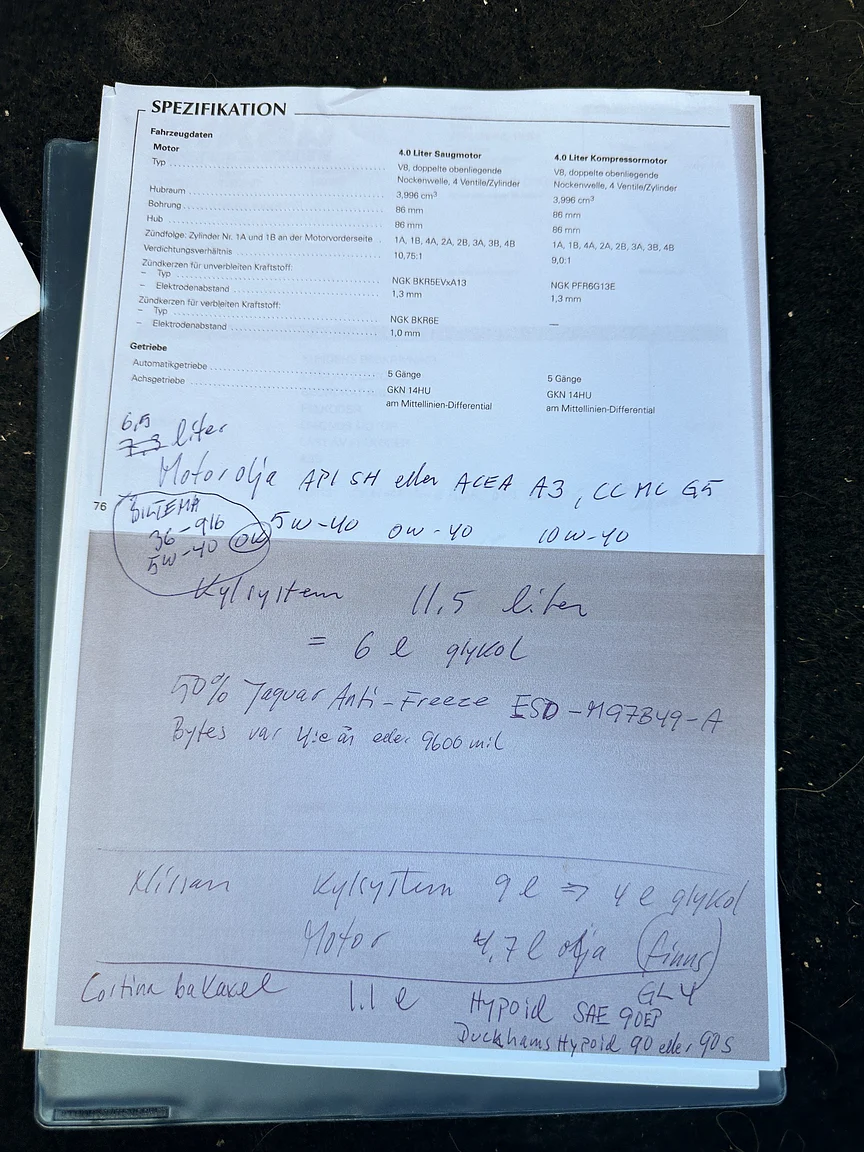 SPEZIFIKATION
Fahrzeugdaten
Motor 4.0 Liter Saugmotor 4.0 Liter Kompressormotor
Typ V8, doppelte obenliegende Nockenwelle, 4 Ventile/Zylinder V8, doppelte obenliegende Nockenwelle, 4 Ventile/Zylinder
Hubraum 3,996 cm³ 3,996 cm³
Bohrung 86 mm 86 mm
Hub 86 mm 86 mm
Zündfolge: Zylinder Nr. 1A und 1B an der Motorvorderseite 1A, 1B, 4A, 2A, 2B, 3A, 3B, 4B 1A, 1B, 4A, 2A, 2B, 3A, 3B, 4B
Verdichtungsverhältnis 10,75:1 9,0:1
Zündkerzen für unverbleiten Kraftstoff:
– Typ NGK BKR5EVxA13 NGK PFR6G13E
– Elektrodenabstand 1,3 mm 1,3 mm
Zündkerzen für verbleiten Kraftstoff:
– Typ NGK BKR6E —
– Elektrodenabstand 1,0 mm
Getriebe
Automatikgetriebe 5 Gänge 5 Gänge
Achsgetriebe GKN 14HU GKN 14HU
am Mittellinien-Differential am Mittellinien-Differential
6,5
7.3 liter
Motorolja API SH eller ACEA A3, CCMC G5
76
BILTEMA
36-916
5W-40 OK
5W-40 0W-40 10W-40
Kylsystem 11,5 liter
= 6 l glykol
50% Jaguar Anti-Freeze ESD-M97B49-A
Bytes var 4:e år eller 9600 mil
Nissan Kylsystem 9 l => 4 l glykol
Motor 4,7 l olja (finns)
Cortina bakaxel 1.1 l Hypoid SAE 90EP GL4
Duckhams Hypoid 90 eller 90S